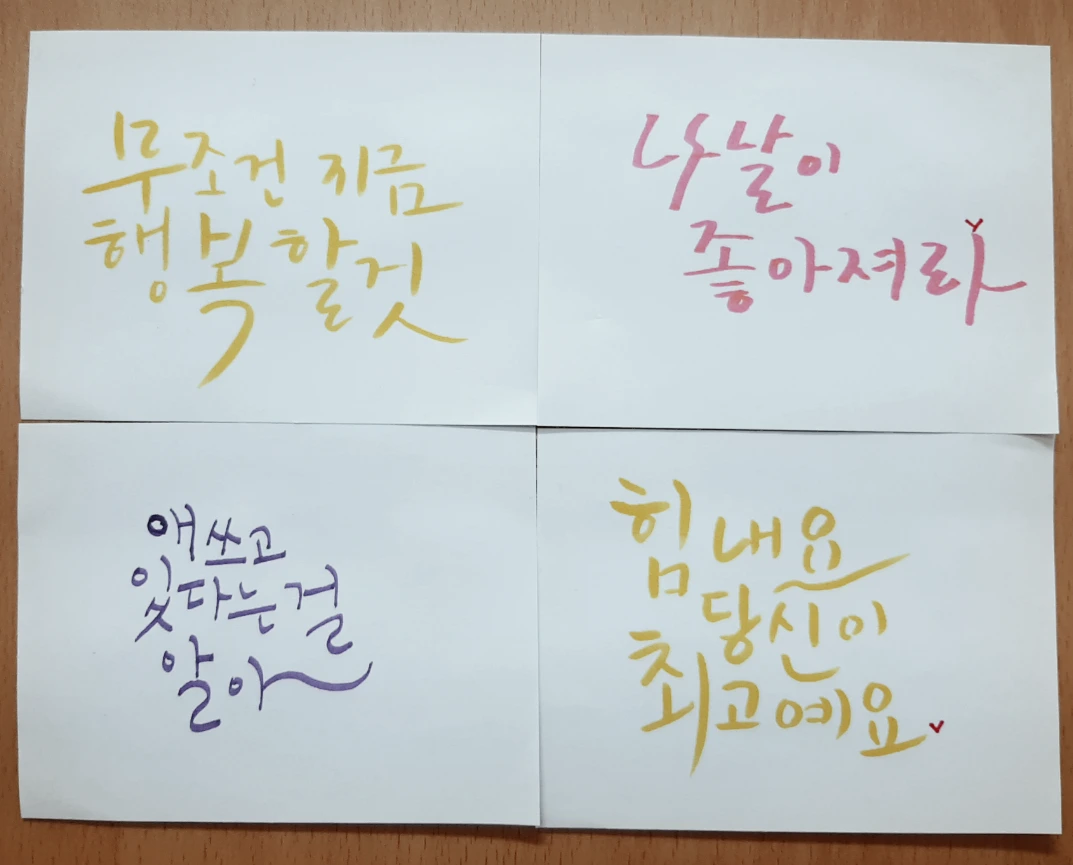 무조건 지금
행복할것
나날이
좋아져라
애쓰고
있다는걸
알아
힘내요
당신이
최고예요